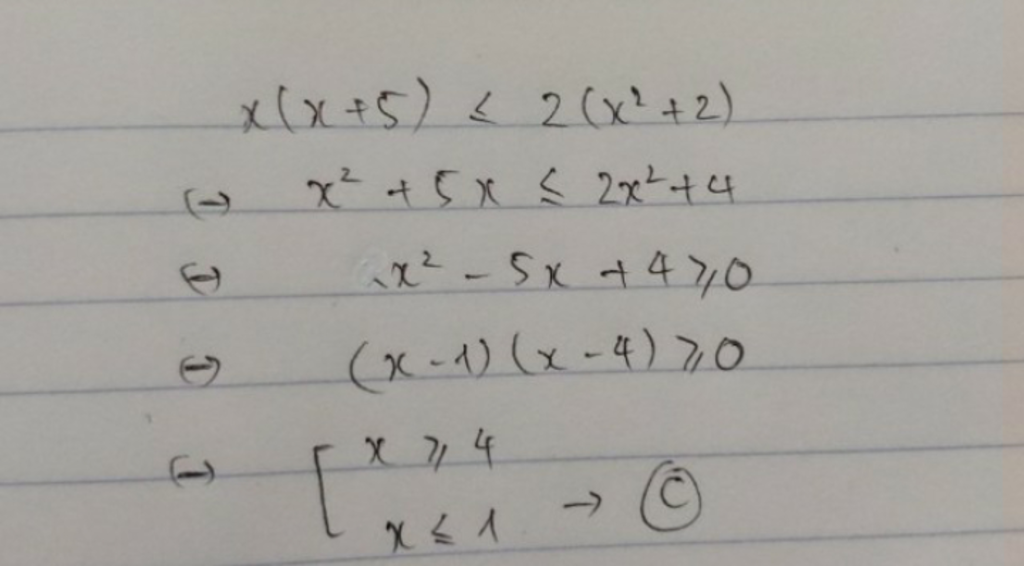 x(x+5) ≤ 2(x²+2)
⇔ x² + 5x ≤ 2x² + 4
⇔ x² - 5x + 4 ⩾ 0
⇔ (x-1)(x-4) ⩾ 0
⇔ [ x ⩾ 4
x ≤ 1 → Ⓒ